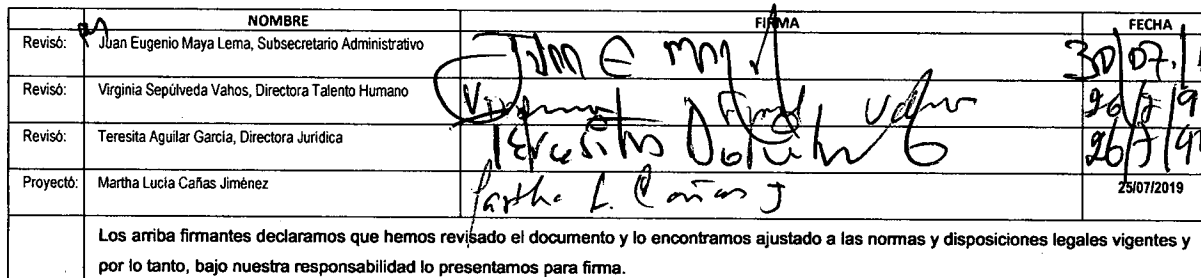 NOMBRE FIRMA FECHA
Revisó: Juan Eugenio Maya Lema, Subsecretario Administrativo Juan E m 30/07/1
Revisó: Virginia Sepúlveda Vahos, Directora Talento Humano Virginia 26/7/9
Revisó: Teresita Aguilar García, Directora Jurídica Teresita 26/7/9
Proyectó: Martha Lucía Cañas Jiménez Martha L. Cañas J 25/07/2019
Los arriba firmantes declaramos que hemos revisado el documento y lo encontramos ajustado a las normas y disposiciones legales vigentes y
por lo tanto, bajo nuestra responsabilidad lo presentamos para firma.